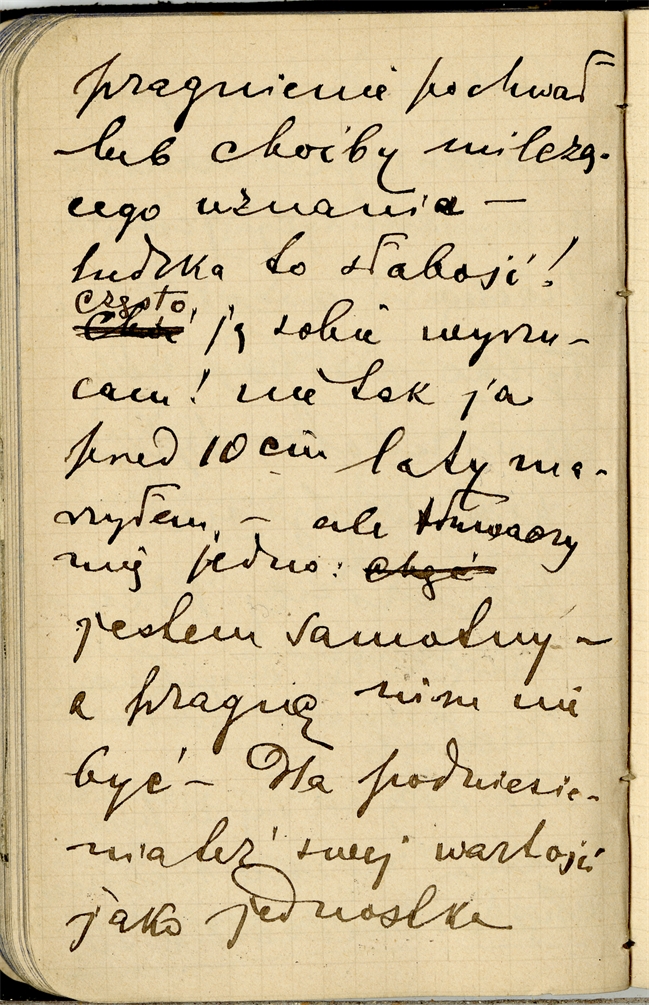 pragnienie pochwał
lub choiby milczą-
cego uznania –
ludzka to słabość!
często
ją sobie wyrzu-
cam! nie tak ja
przed 10ciu laty ma-
rzyłem, – ale tłumaczy
mię jedno:
jestem samotny –
a pragnę nim nie
być – Dla podniesie-
nia też swej wartości
jako jednostka